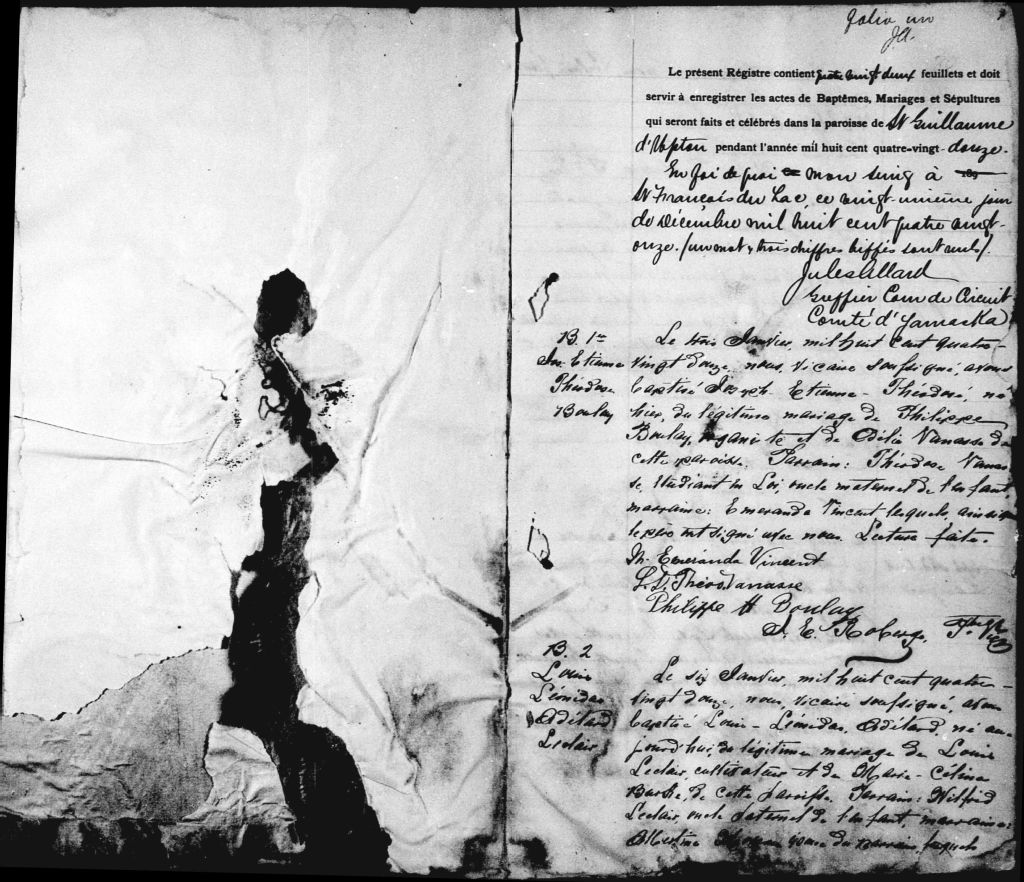 folio un
J.A.
Le présent Régistre contient quatre vingt deux feuillets et doit
servir à enregistrer les actes de Baptêmes, Mariages et Sépultures
qui seront faits et célébrés dans la paroisse de St Guillaume
d'Upton pendant l'année mil huit cent quatre-vingt-douze.
En foi de quoi mon seing à 189
St François du Lac, ce vingt-unième jour
de Décembre mil huit cent quatre vingt-
onze. (un mot & trois chiffres biffés sont nuls).
Jules Allard
Greffier Cour de Circuit
Comté d'Yamaska
B. 1er
Jos. Etienne
Théodose
Boulay
Le trois Janvier, mil huit cent quatre-
vingt douze, nous, vicaire soussigné, avons
baptisé Joseph-Etienne-Théodose, né
hier, du légitime mariage de Philippe
Boulay, organiste et de Odélie Vanasse de
cette paroisse. Parrain: Théodose Vanas-
se, Etudiant en Loi, oncle maternel de l'enfant,
marraine: Emeranda Vincent lesquels, ainsi que
le père ont signé avec nous. Lecture faite.
M. Emeranda Vincent
Théod. Vanasse
Philippe H Boulay
J. E. Roberge, Ptre Vic
B. 2
Louis
Léonidas
Adélard
Leclair
Le six Janvier, mil huit cent quatre-
vingt douze, nous, vicaire soussigné, avons
baptisé Louis-Léonidas, Adélard, né au-
jourd'hui, du légitime mariage de Louis
Leclair, cultivateur et de Marie-Célina
de cette paroisse. Parrain: Wilfrid
Leclair, oncle paternel de l'enfant, marraine:
Albertine épouse du parrain, lesquels